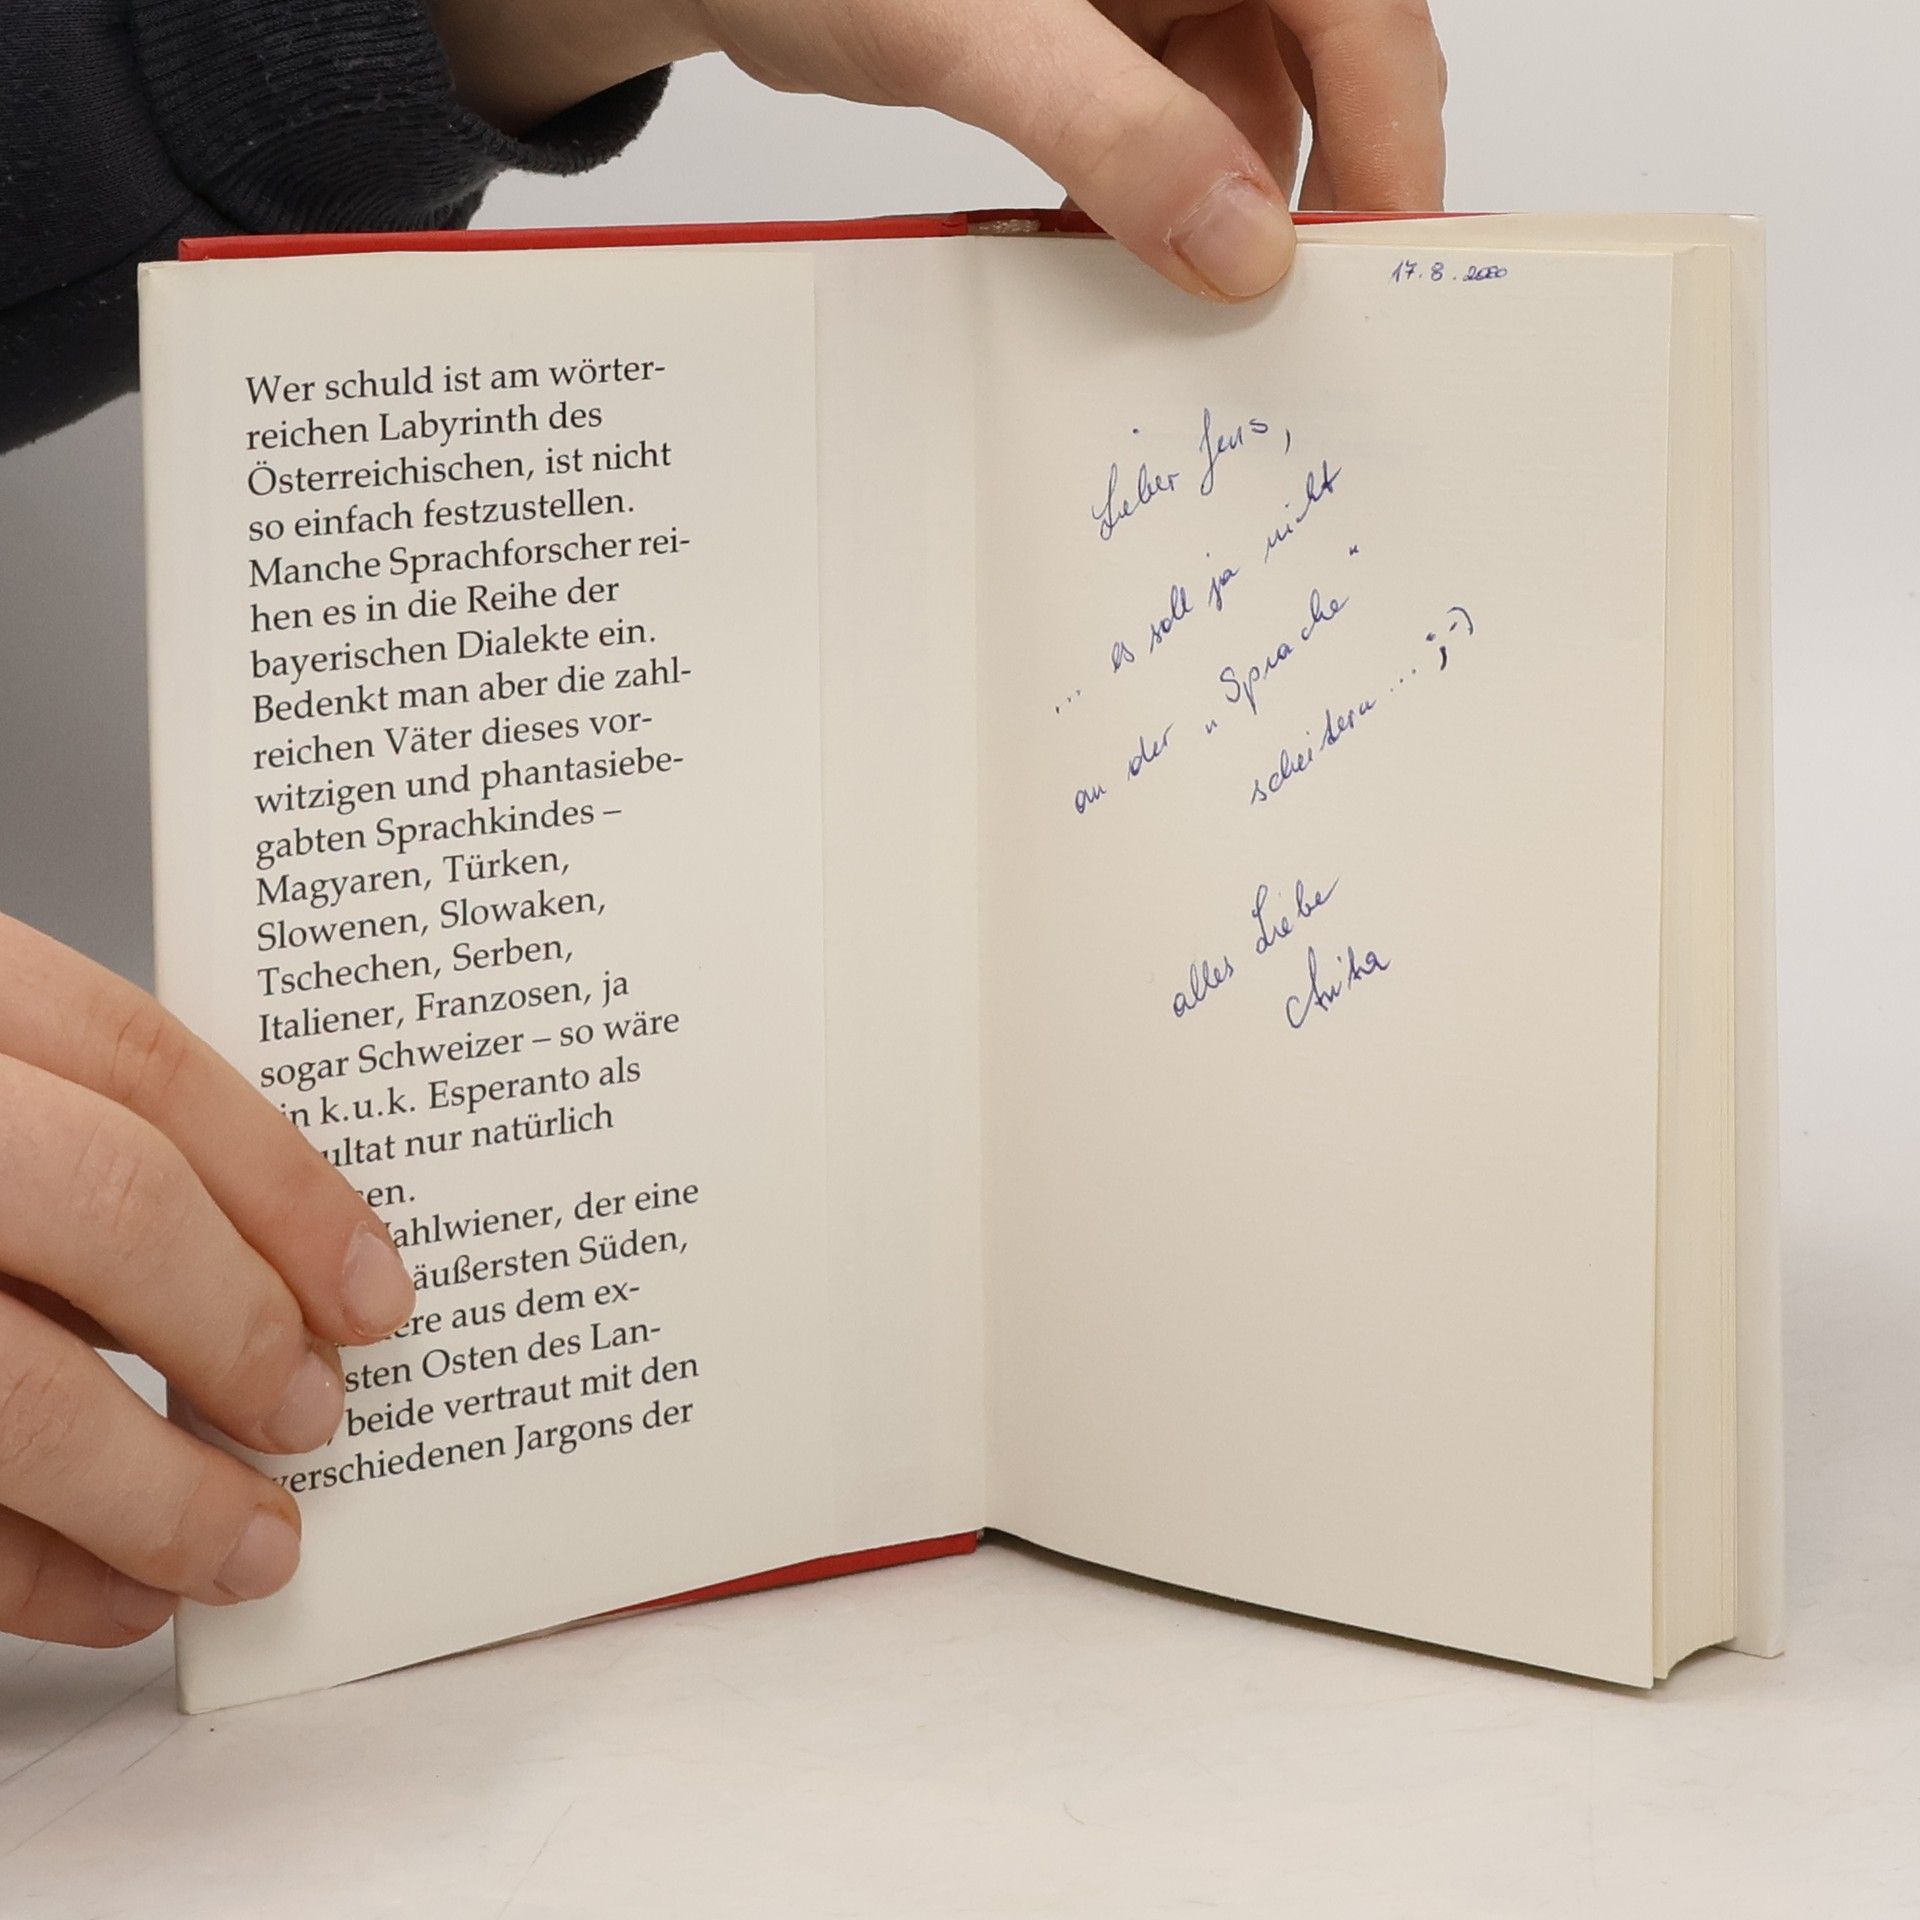 Wer schuld ist am wörter-
reichen Labyrinth des
Österreichischen, ist nicht
so einfach festzustellen.
Manche Sprachforscher rei-
hen es in die Reihe der
bayerischen Dialekte ein.
Bedenkt man aber die zahl-
reichen Väter dieses vor-
witzigen und phantasiebe-
gabten Sprachkindes –
Magyaren, Türken,
Slowenen, Slowaken,
Tschechen, Serben,
Italiener, Franzosen, ja
sogar Schweizer – so wäre
k.u.k. Esperanto als
nur natürlich
der eine
äußersten Süden,
aus dem ex-
Osten des Lan-
beide vertraut mit den
verschiedenen Jargons der
17.8.2000
Lieber Jens,
... es soll ja nicht
an der „Sprache“
scheitern... ;-)
alles Liebe
Anita